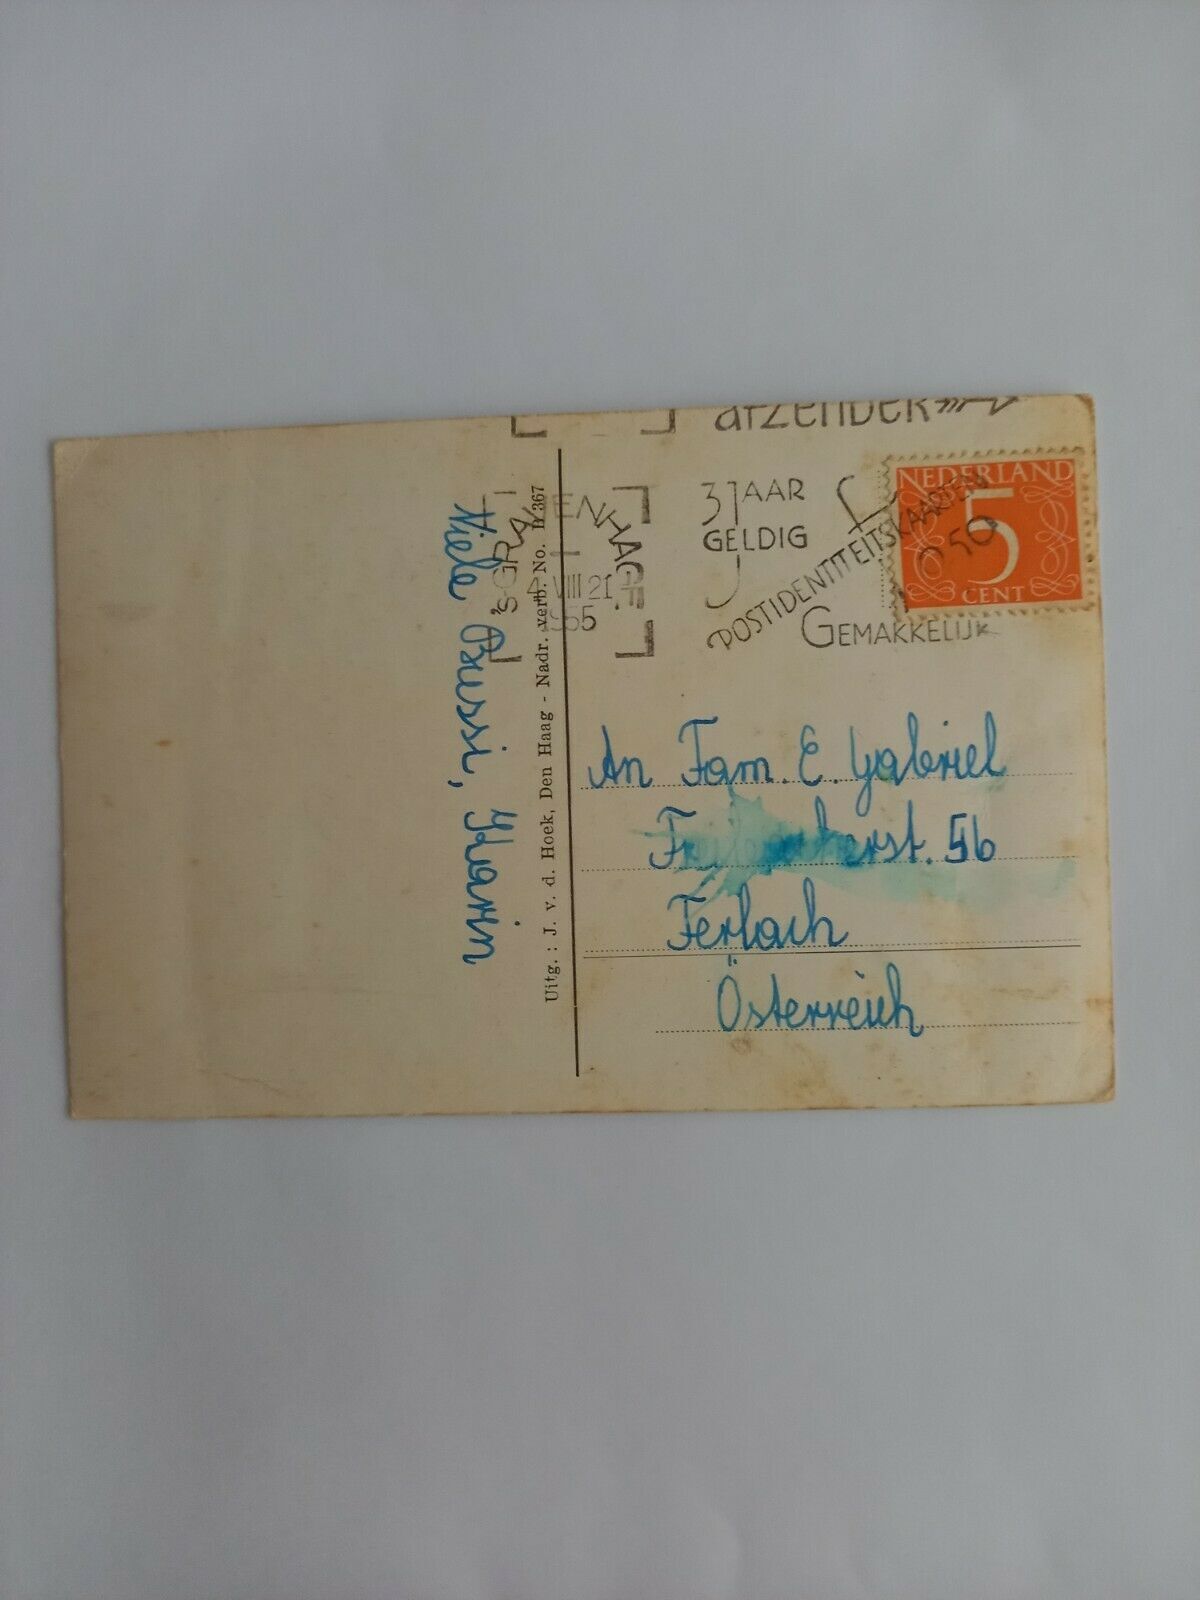 afzender
'S-GRAVENHAGE
3 JAAR
GELDIG
POSTIDENTITEITSKAARTEN
GEMAKKELIJK
VIII 21
NEDERLAND
5
CENT
An Fam. E. Gabriel
56
Ferlach
Österreich
Uitg.: J. v. d. Hoek, Den Haag - Nadr. verb. No. B 367
Viele Bussi, Karin